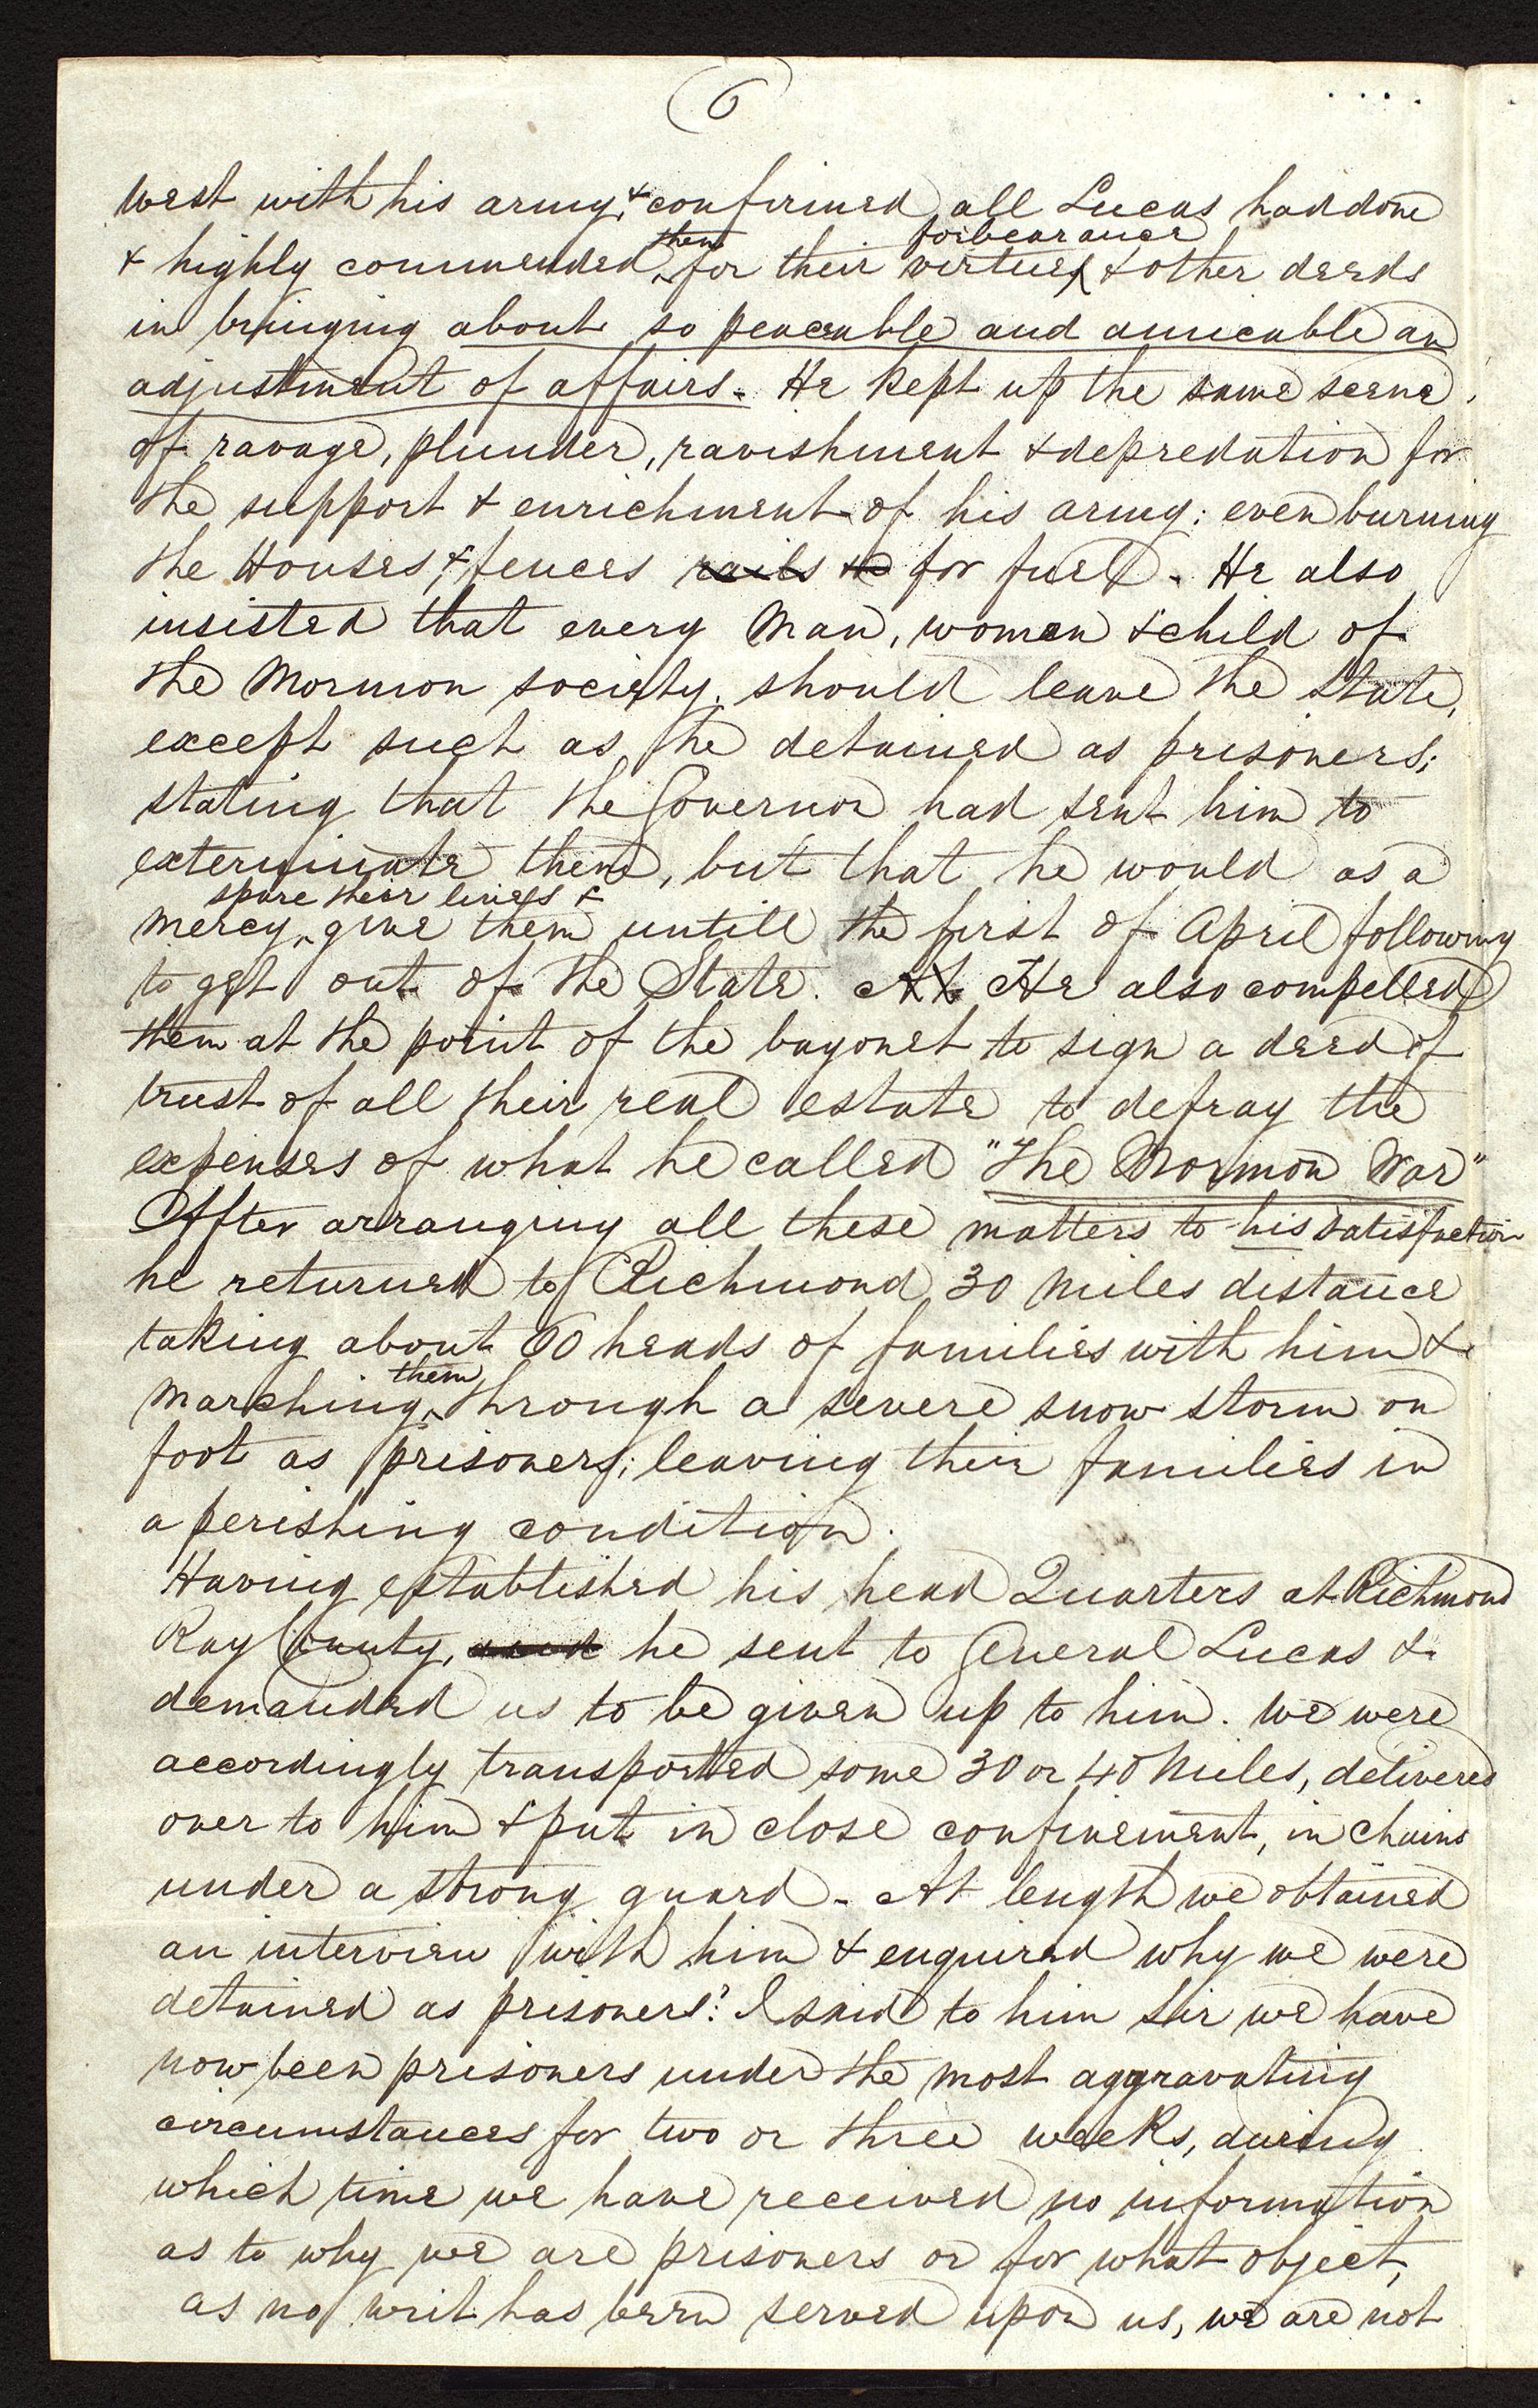 6
West with his army, & confirmed all Lucas had done
& highly commended them for their virtues forbearance & other deeds
in bringing about so peaceable and amicable an
adjustment of affairs. He kept up the same scene
of ravage, plunder, ravishment & depredation for
the support & enrichment of his army; even burning
the Houses & fences rails for fuel. He also
insisted that every man, women & child of
the Mormon society, should leave the State,
except such as he detained as prisoners;
stating that the Governor had sent him to
exterminate them, but that he would as a
mercy spare their lives & give them untill the first of April following
to get out of the State. At He also compelled
them at the point of the bayonet to sign a deed of
trust of all their real estate to defray the
expenses of what he called "The Mormon War"
After arranging all these matters to his satisfaction
he returned to Richmond, 30 miles distance
taking about 60 heads of families with him &
marching them through a severe snow storm on
foot as prisoners; leaving their families in
a perishing condition.
Having established his head Quarters at Richmond
Ray County, and he sent to General Lucas &
demanded us to be given up to him. We were
accordingly transported some 30 or 40 Miles, delivered
over to him & put in close confinement, in Chains
under a strong guard. At length we obtained
an interview with him & enquired why we were
detained as prisoners? I said to him Sir we have
now been prisoners under the most aggravating
circumstances for two or three weeks, during
which time we have received no information
as to why we are prisoners or for what object,
as no writ has been served upon us, we are not